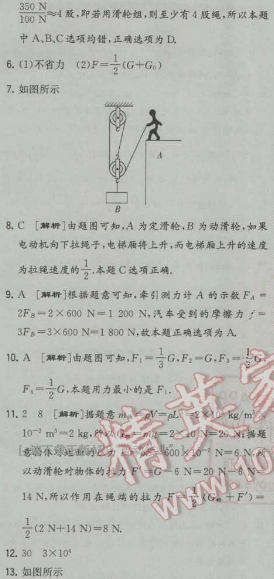 350 N/100 N≈4股,即若用滑轮组,则至少有4股绳,所以本题
中A、B、C选项均错,正确选项为D.
6. (1)不省力 (2)F=1/2(G+G₀)
7. 如图所示
A
B
8. C [解析]由题图可知,A为定滑轮,B为动滑轮,如果
电动机向下拉绳子,电梯厢将上升,而电梯厢上升的速度
为拉绳速度的1/2.本题C选项正确.
9. A [解析]根据题意可知,牵引测力计A的示数F_A=
2F_B=2×600 N=1 200 N,汽车受到的摩擦力f=
3F_B=3×600 N=1 800 N,故本题正确选项为A.
10. A [解析]由题图可知,F₁=1/3G,F₂=G,F₃=1/2G,
F₄=1/2G,本题用力最小的是F₁.
11. 2 8 [解析]据题意m物=ρV=ρL³=2×10³ kg/m³×
10⁻³ m³=2 kg,所以G物=mg=2×10 N=20 N;据题
=600×10⁻² N=6 N,所
以动滑轮对物体的拉力F′=G-6 N=20 N-6 N=
14 N,所以作用在绳端的拉力F=1/2(G动+F′)=
1/2(2 N+14 N)=8 N.
12. 30 3×10⁴
13. 如图所示
精英家